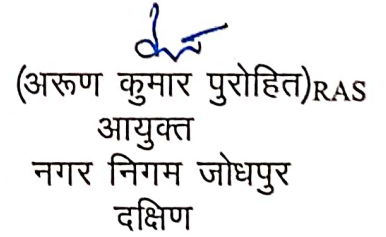 (अरूण कुमार पुरोहित)RAS
आयुक्त
नगर निगम जोधपुर
दक्षिण